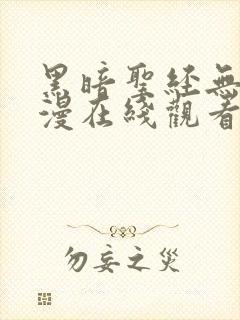 黑暗聖經無
漫在綫觀看
勿妄之災